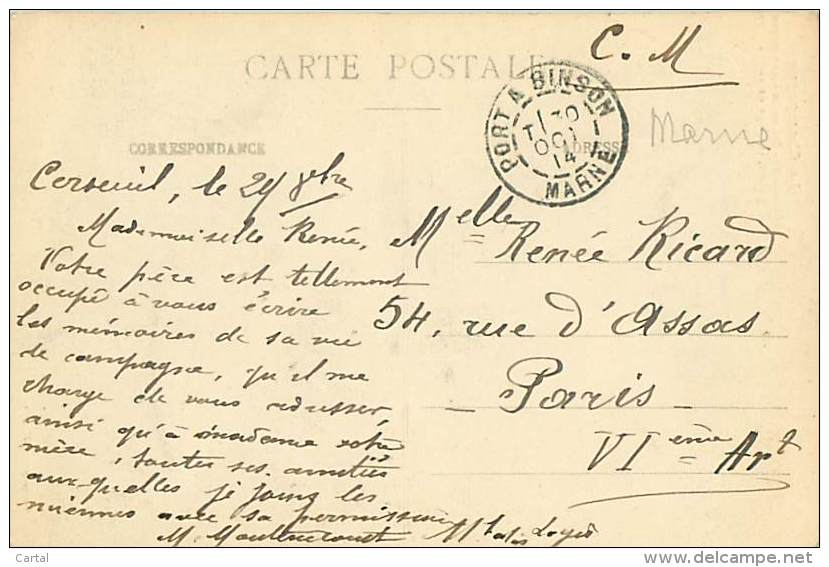 C. M
CARTE POSTALE
PORT A BINSON
30
OCT
14
MARNE
Marne
CORRESPONDANCE
ADRESSE
Cerseuil, le 29 8bre
Mademoiselle Renée,
Votre père est tellement
occupé à vous écrire
les mémoires de sa vie
de campagne, qu'il me
charge de vous adresser,
ainsi qu'à madame votre
mère, toutes ses amitiés
auxquelles je joins les
miennes avec sa permission
M.
Melle Renée Ricard
54, rue d'Assas
Paris
VIème Art
Cartal
delcampe.net